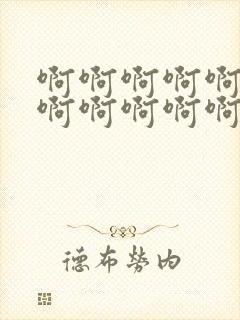 啊啊啊啊啊
啊啊啊啊啊
德布勞內